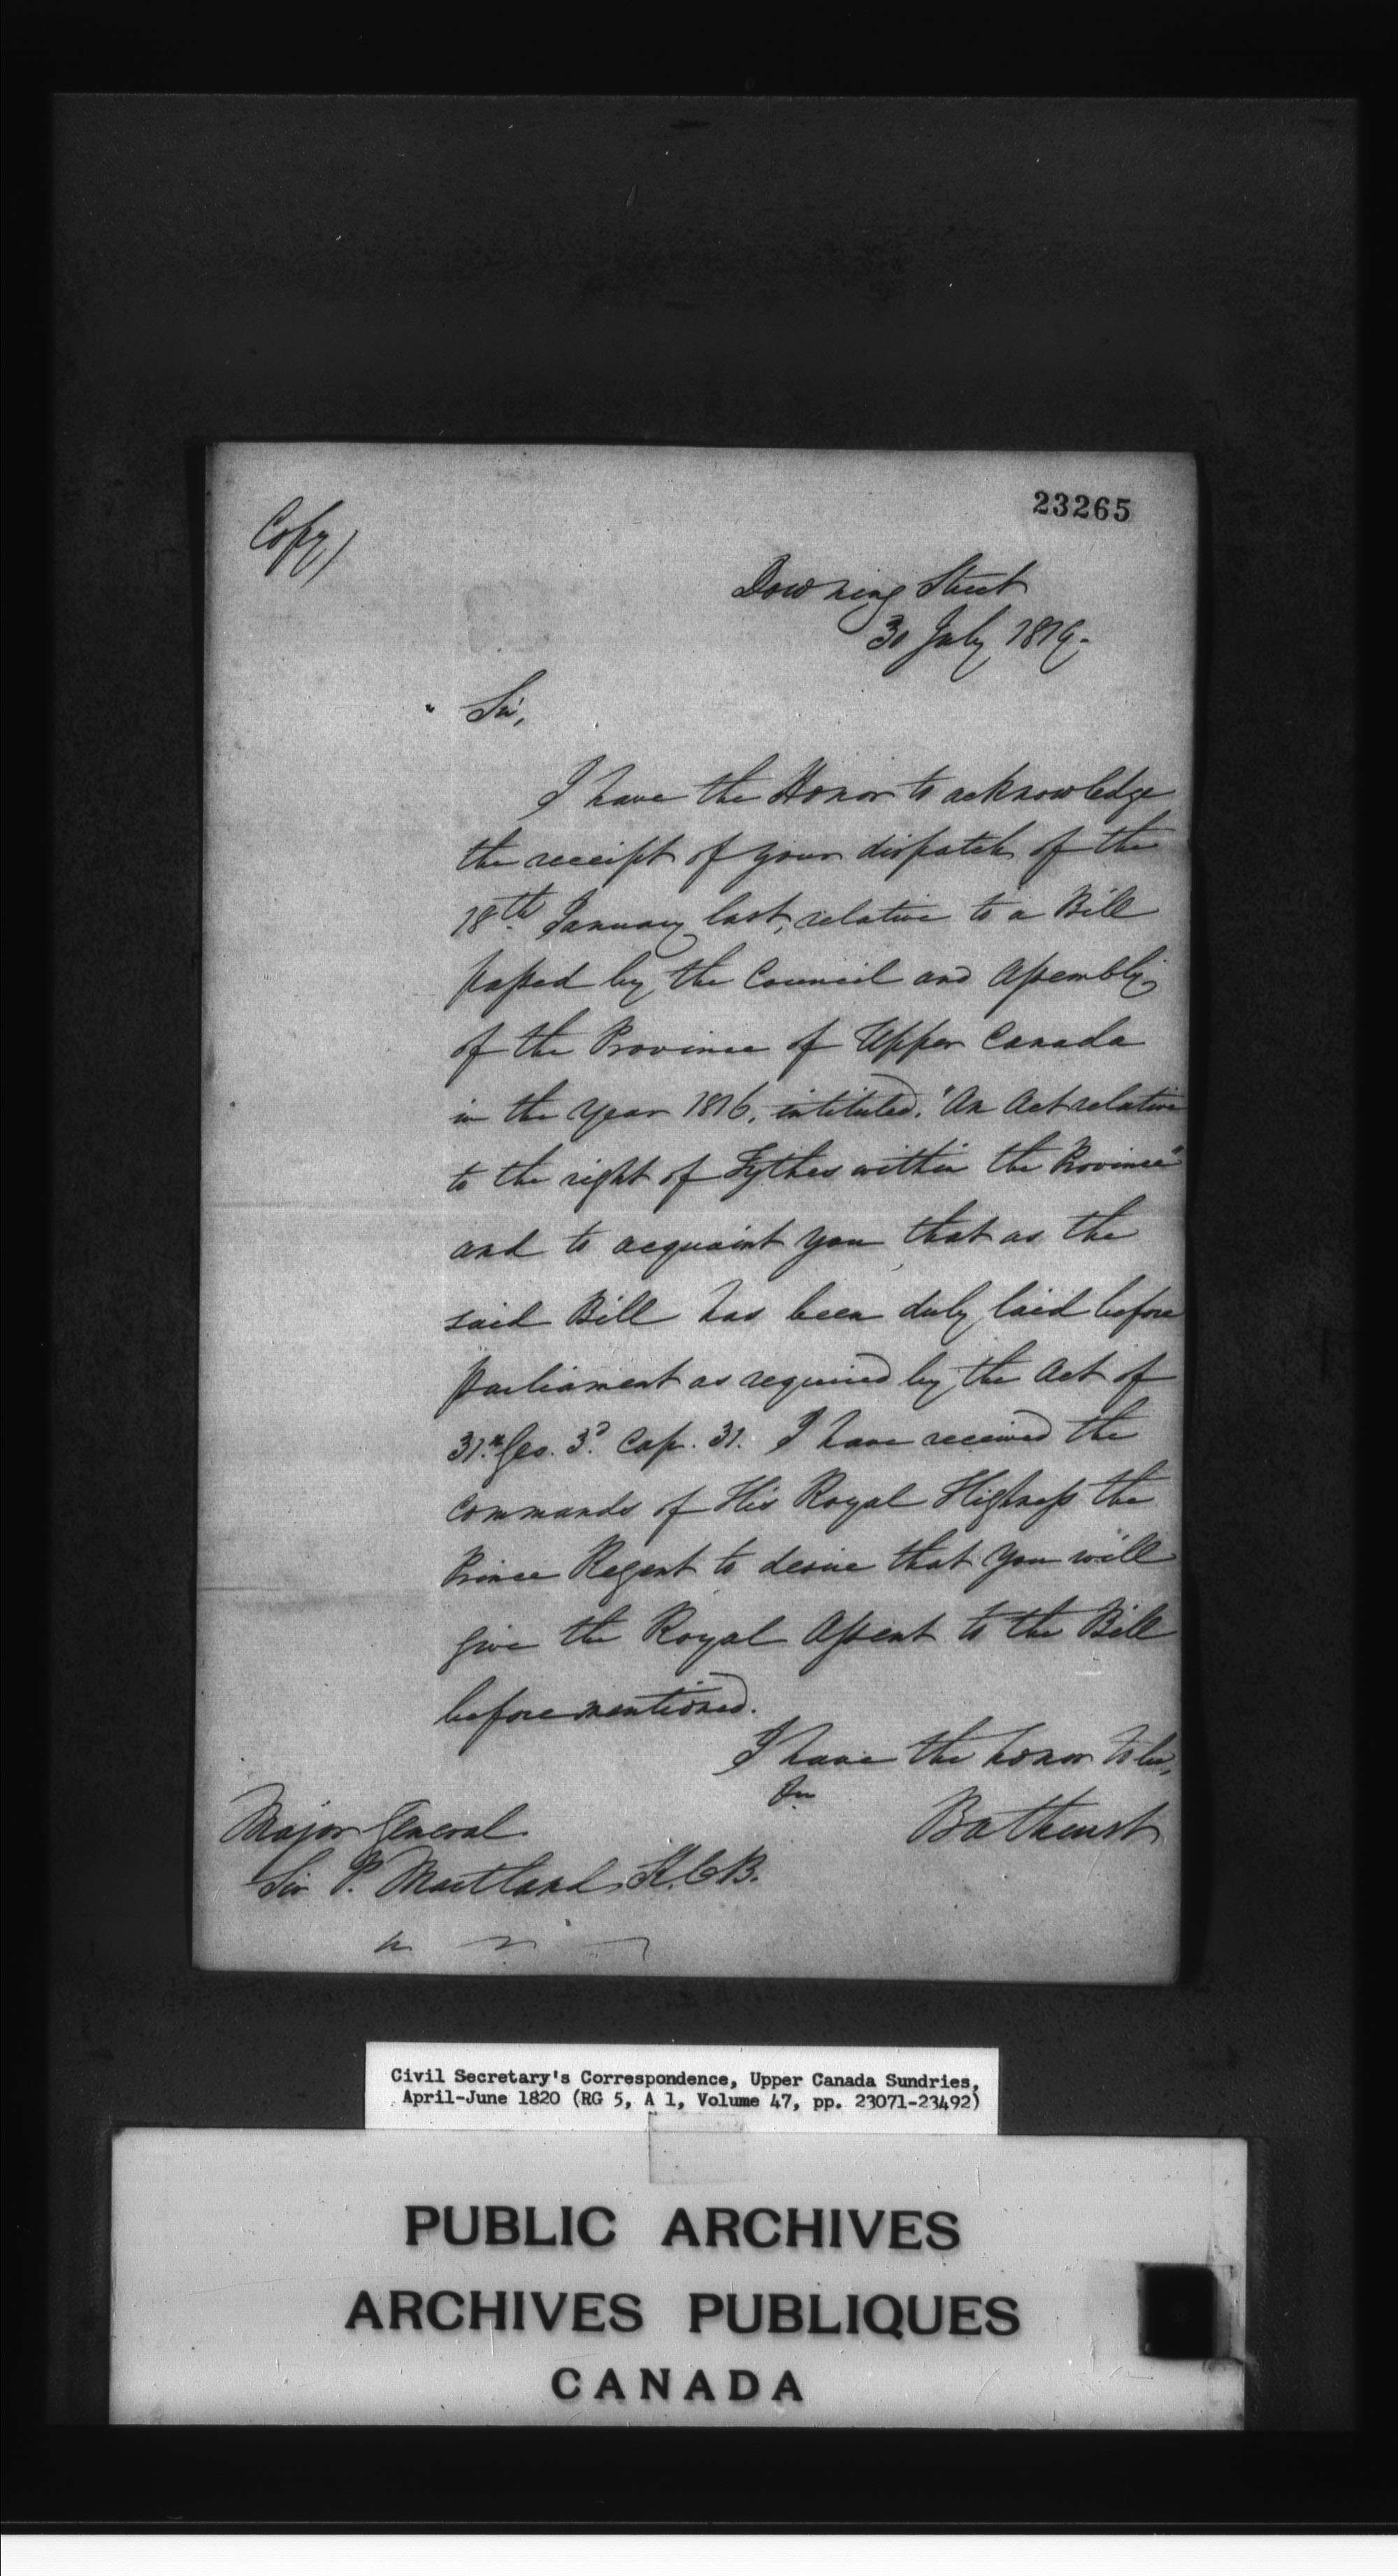 23265
Copy)
Downing Street
30 July 1819.
Sir,
I have the Honor to acknowledge
the receipt of your dispatch of the
18th. January last, relative to a Bill
passed by the Council and Assembly
of the Province of Upper Canada
in the Year 1816, intituled, "An Act relative
to the right of Tythes within the Province"
and to acquaint you that as the
said Bill has been duly laid before
Parliament as required by the Act of
31st. Geo. 3d. Cap. 31. I have received the
commands of His Royal Highness the
Prince Regent to desire that you will
give the Royal Assent to the Bill
beforementioned.
I have the honor to be,
Bathurst
Major General
Sir P. Maitland, K.C.B.
Civil Secretary's Correspondence, Upper Canada Sundries,
April-June 1820 (RG 5, A 1, Volume 47, pp. 23071-23492)
PUBLIC ARCHIVES
ARCHIVES PUBLIQUES
CANADA